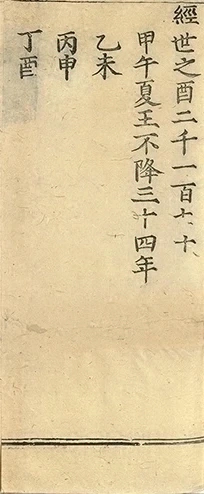 經世之酉二千一百七十
甲午夏王不降三十四年
乙未
丙申
丁酉